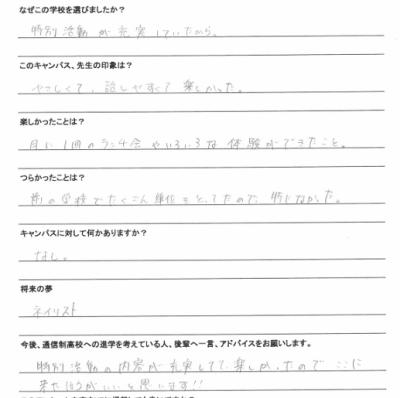 なぜこの学校を選びましたか？
特別活動が充実していたから。
このキャンパス、先生の印象は？
やさしくて、話しやすくて楽しかった。
楽しかったことは？
月に1回のランチ会やいろいろな体験ができたこと。
つらかったことは？
前の学校でたくさん単位をとってたので、特になかった。
キャンパスに対して何かありますか？
なし。
将来の夢
ネイリスト
今後、通信制高校への進学を考えている人、後輩へ一言、アドバイスをお願いします。
特別活動の内容が充実してて、楽しかったので ここに
来たほうがいいと思います!!